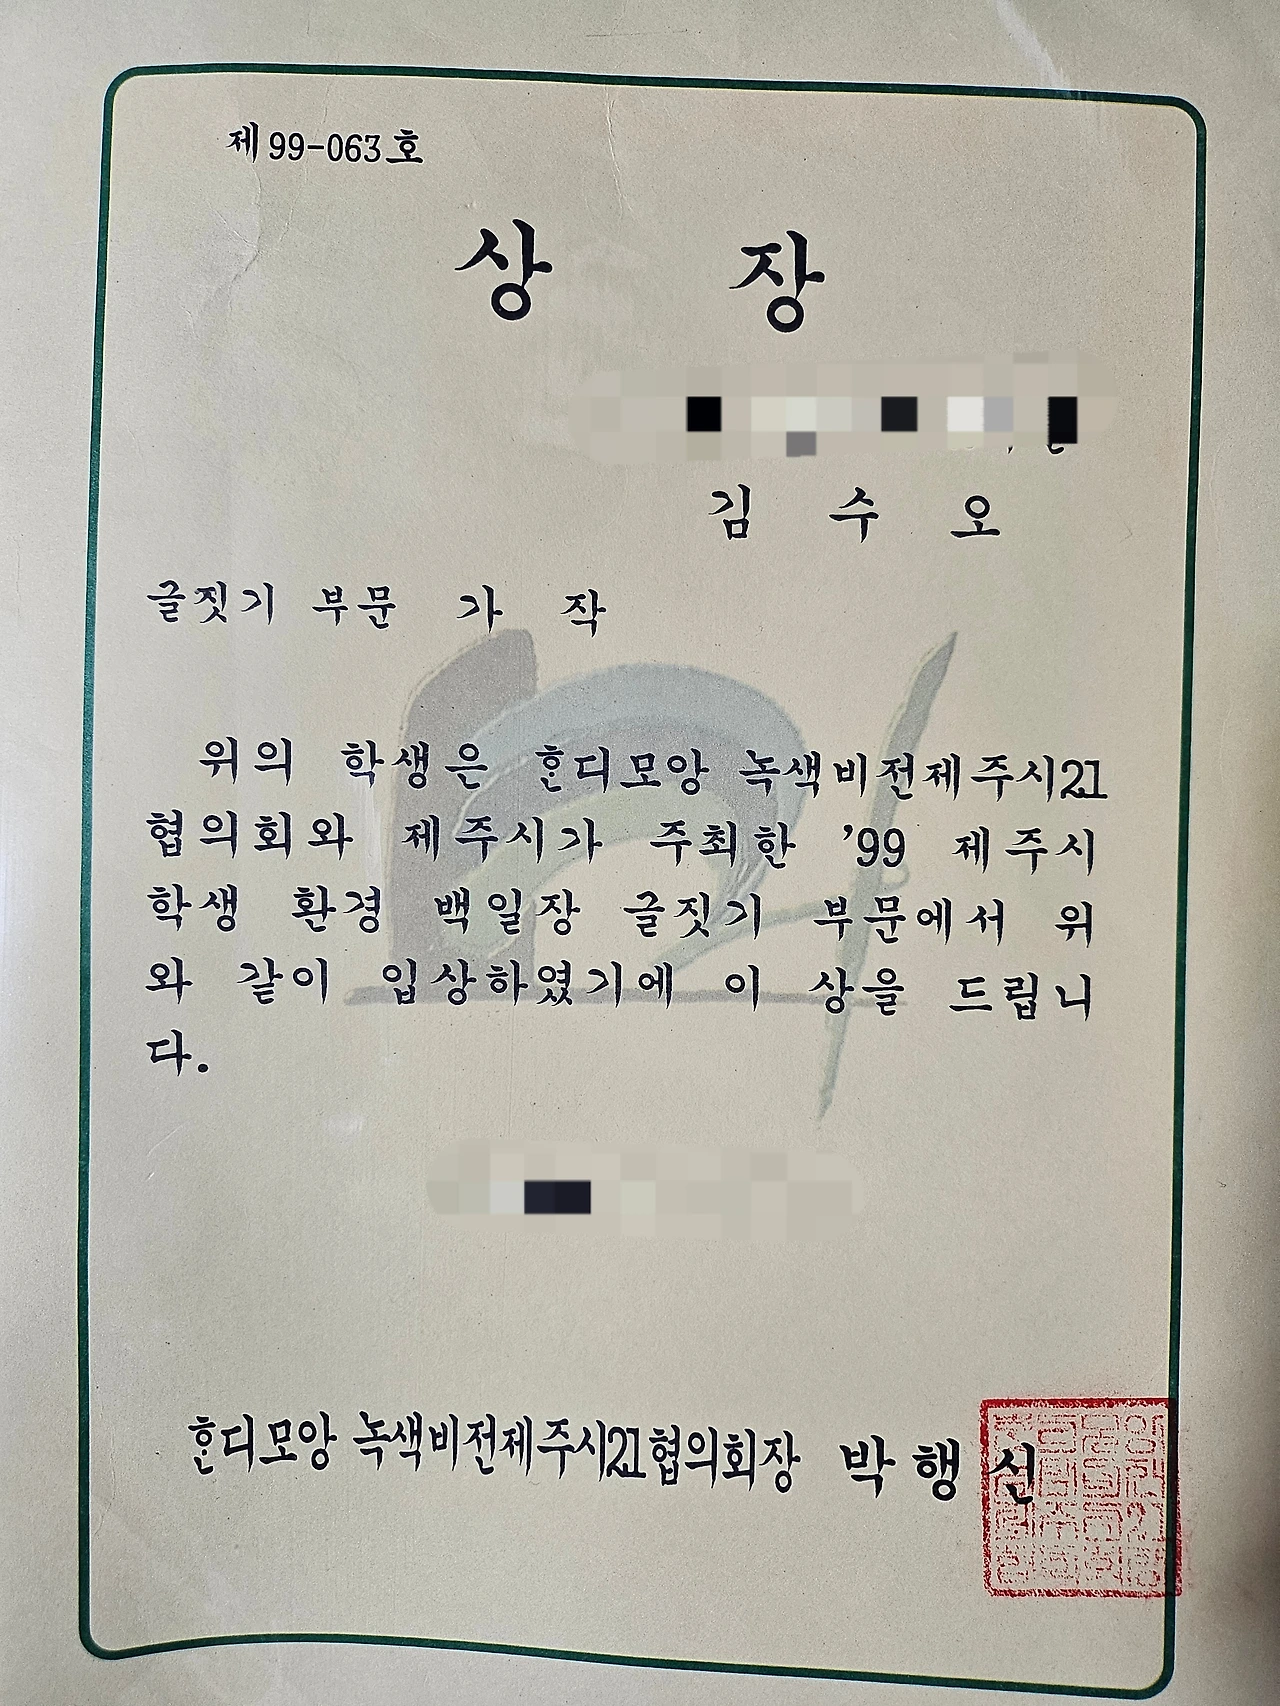 제 99-063 호
상 장
김 수 오
글짓기 부문 가 작
위의 학생은 ᄒᆞᆫ디모앙 녹색비전제주시21
협의회와 제주시가 주최한 '99 제주시
학생 환경 백일장 글짓기 부문에서 위
와 같이 입상하였기에 이 상을 드립니
다.
ᄒᆞᆫ디모앙 녹색비전제주시21협의회장 박 행 신